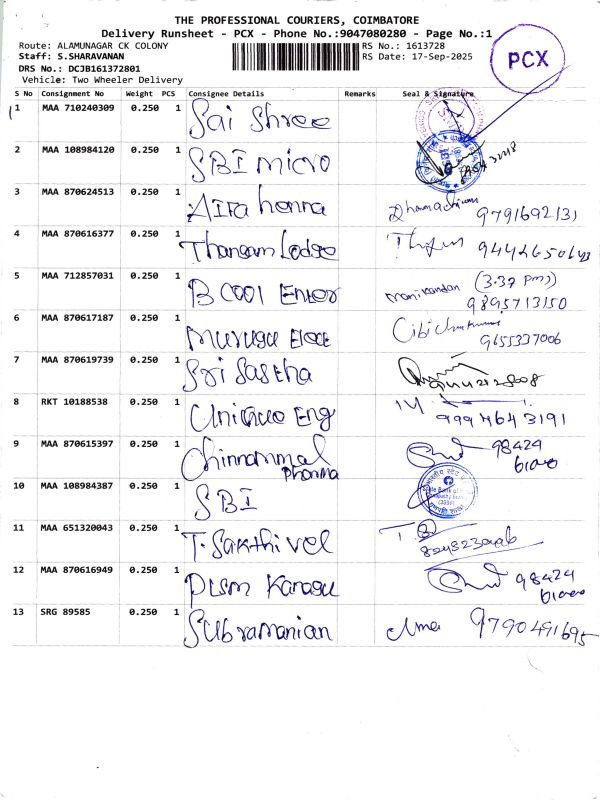 THE PROFESSIONAL COURIERS, COIMBATORE
Delivery Runsheet - PCX - Phone No.:9047080280 - Page No.:1
Route: ALAMUNAGAR CK COLONY
RS No.: 1613728
Staff: S.SHARAVANAN
RS Date: 17-Sep-2025
DRS No.: DCJB161372801
Vehicle: Two Wheeler Delivery
PCX
S No Consignment No Weight PCS Consignee Details Remarks Seal & Signature
1 MAA 710240309 0.250 1 Sai Shree
2 MAA 108984120 0.250 1 SBI micro
3 MAA 870624513 0.250 1 9791692131
4 MAA 870616377 0.250 1 Thangam Lodge 9442650643
5 MAA 712857031 0.250 1 B COOl Enter manikandan (3:37 pm)
9895713150
6 MAA 870617187 0.250 1 Murugu Elect
9655337006
7 MAA 870619739 0.250 1 Sri Sastha
8 RKT 10188538 0.250 1 Unique Eng 9994643191
9 MAA 870615397 0.250 1 Chinnammal 98424
Pharma
10 MAA 108984387 0.250 1 SBI
11 MAA 651320043 0.250 1 T. Sakthivel
12 MAA 870616949 0.250 1 98424
13 SRG 89585 0.250 1 Subramanian Uma 9790491695